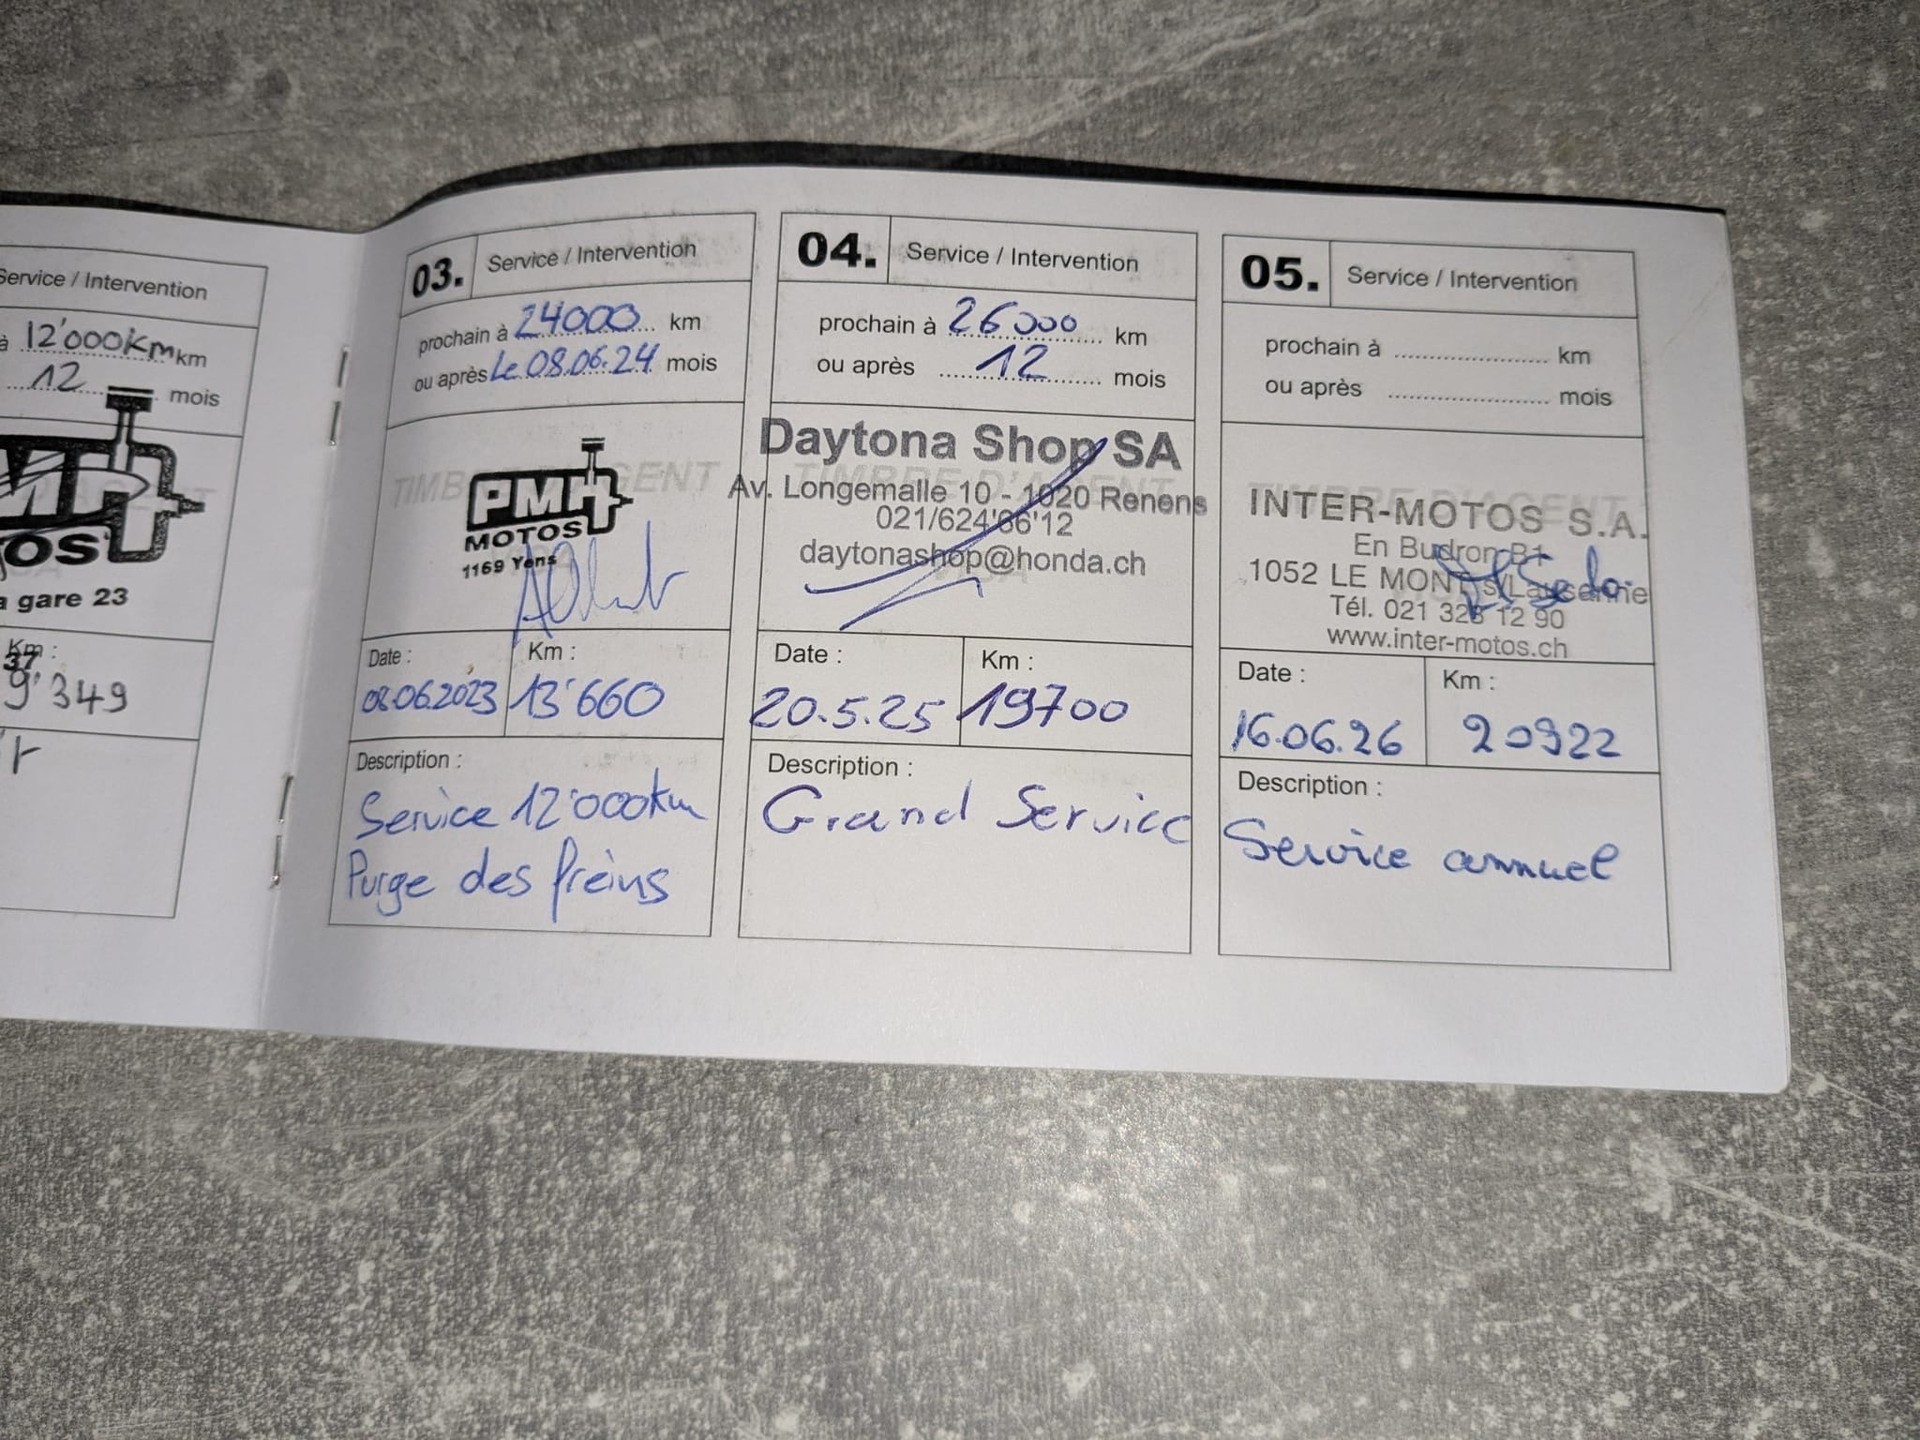 Service / Intervention
à 12'000km km
12 mois
a gare 23
Km :
37
9'349
03. Service / Intervention
prochain à 24000 km
ou après le 08.06.24 mois
TIMB GENT
PMH
MOTOS
1169 Yens
Date : Km :
08.06.2023 13'660
Description :
Service 12'000km
Purge des freins
04. Service / Intervention
prochain à 26000 km
ou après 12 mois
TIMBRE D'AGENT
Daytona Shop SA
Av. Longemalle 10 - 1020 Renens
021/624'66'12
daytonashop@honda.ch
Date : Km :
20.5.25 19700
Description :
Grand Service
05. Service / Intervention
prochain à km
ou après mois
TIMBRE D'AGENT
INTER-MOTOS S.A.
En Budron B1
1052 LE MONT s/Lausanne
Tél. 021 323 12 90
www.inter-motos.ch
Date : Km :
16.06.26 20922
Description :
Service annuel